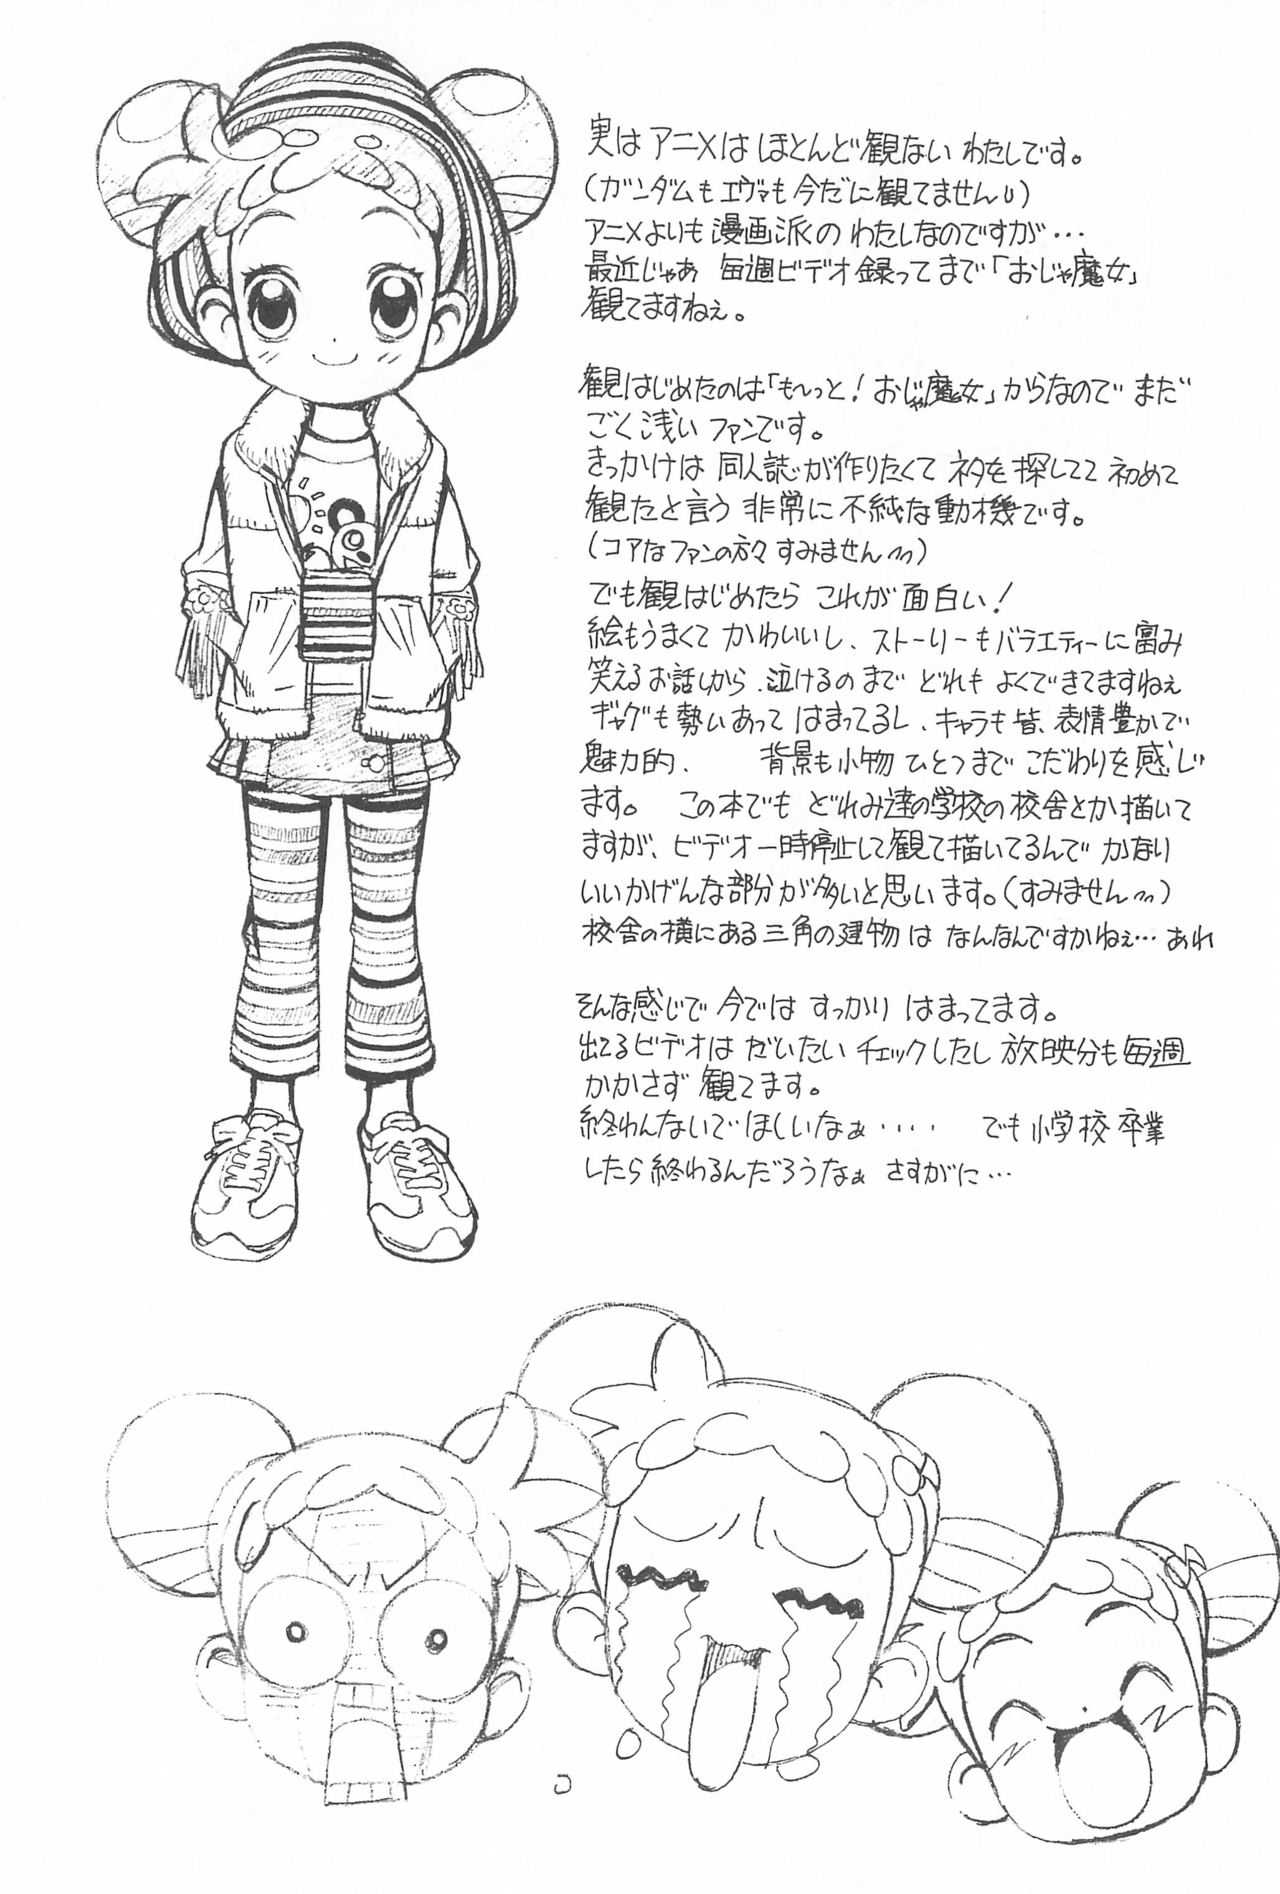 実はアニメはほとんど観ないわたしです。
(ガンダムもエヴァも今だに観てません)
アニメよりも漫画派のわたしなのですが…
最近じゃあ 毎週ビデオ録ってまで「おじゃ魔女」
観てますねぇ。
観はじめたのは「も〜っと！おじゃ魔女」からなので まだ
ごく浅い ファンです。
きっかけは 同人誌が作りたくて ネタを探してて 初めて
観たと言う 非常に不純な動機です。
(コアなファンの方々 すみません)
でも観はじめたら これが面白い！
絵もうまくて かわいいし、ストーリーもバラエティーに富み
笑えるお話しから、泣けるのまで どれも よくできてますねぇ
ギャグも勢いあって はまってるし、キャラも皆、表情豊かで
魅力的、 背景も小物ひとつまで こだわりを感じ
ます。 この本でも どれみ達の学校の校舎とか描いて
ますが、ビデオ一時停止して観て描いてるんで かなり
いいかげんな部分が多いと思います。(すみません)
校舎の横にある三角の建物は なんなんですかねぇ…あれ
そんな感じで 今では すっかり はまってます。
出てるビデオは だいたい チェックしたし 放映分も毎週
かかさず 観てます。
終わんないでほしいなぁ‥‥ でも小学校卒業
したら終わるんだろうなぁ さすがに…